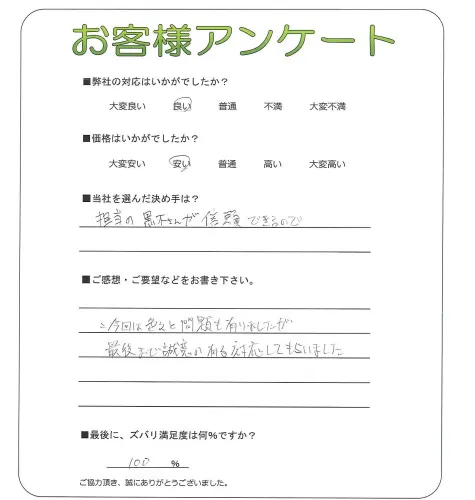 お客様アンケート
■弊社の対応はいかがでしたか?
大変良い 良い 普通 不満 大変不満
■価格はいかがでしたか?
大変安い 安い 普通 高い 大変高い
■当社を選んだ決め手は?
担当の黒木さんが信頼できるので
■ご感想・ご要望などをお書き下さい。
今回は色々と問題も有りましたが
最後まで誠意の有る対応してもらいました
■最後に、ズバリ満足度は何%ですか?
100 %
ご協力頂き、誠にありがとうございました。